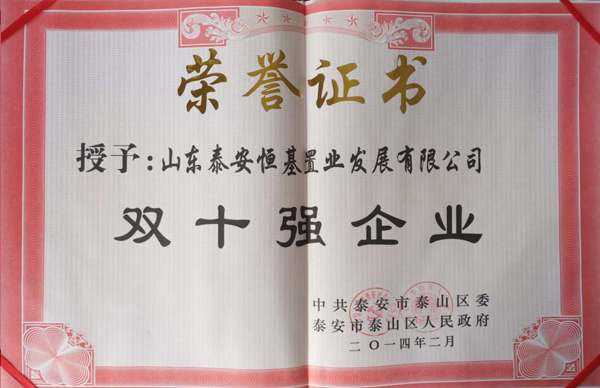 荣誉证书
授予:山东泰安恒基置业发展有限公司
双十强企业
中共泰安市泰山区委
泰安市泰山区人民政府
二〇一四年二月